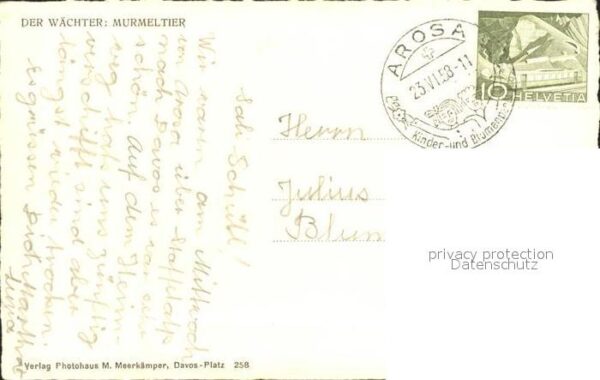 DER WÄCHTER: MURMELTIER
Sali Schübl!
Wir waren am Mittwoch
von Arosa über
nach Davos es war sehr
schön. Auf dem Heim-
weg hats uns zünftig
verschifft sind aber
längst wieder trocken.
Es grüssen Dich Martha
AROSA
23.VI.58-11
Kinder- und Blumen
10 HELVETIA
Herrn
Julius
Blum
privacy protection
Datenschutz
Verlag Photohaus M. Meerkämper, Davos-Platz 258